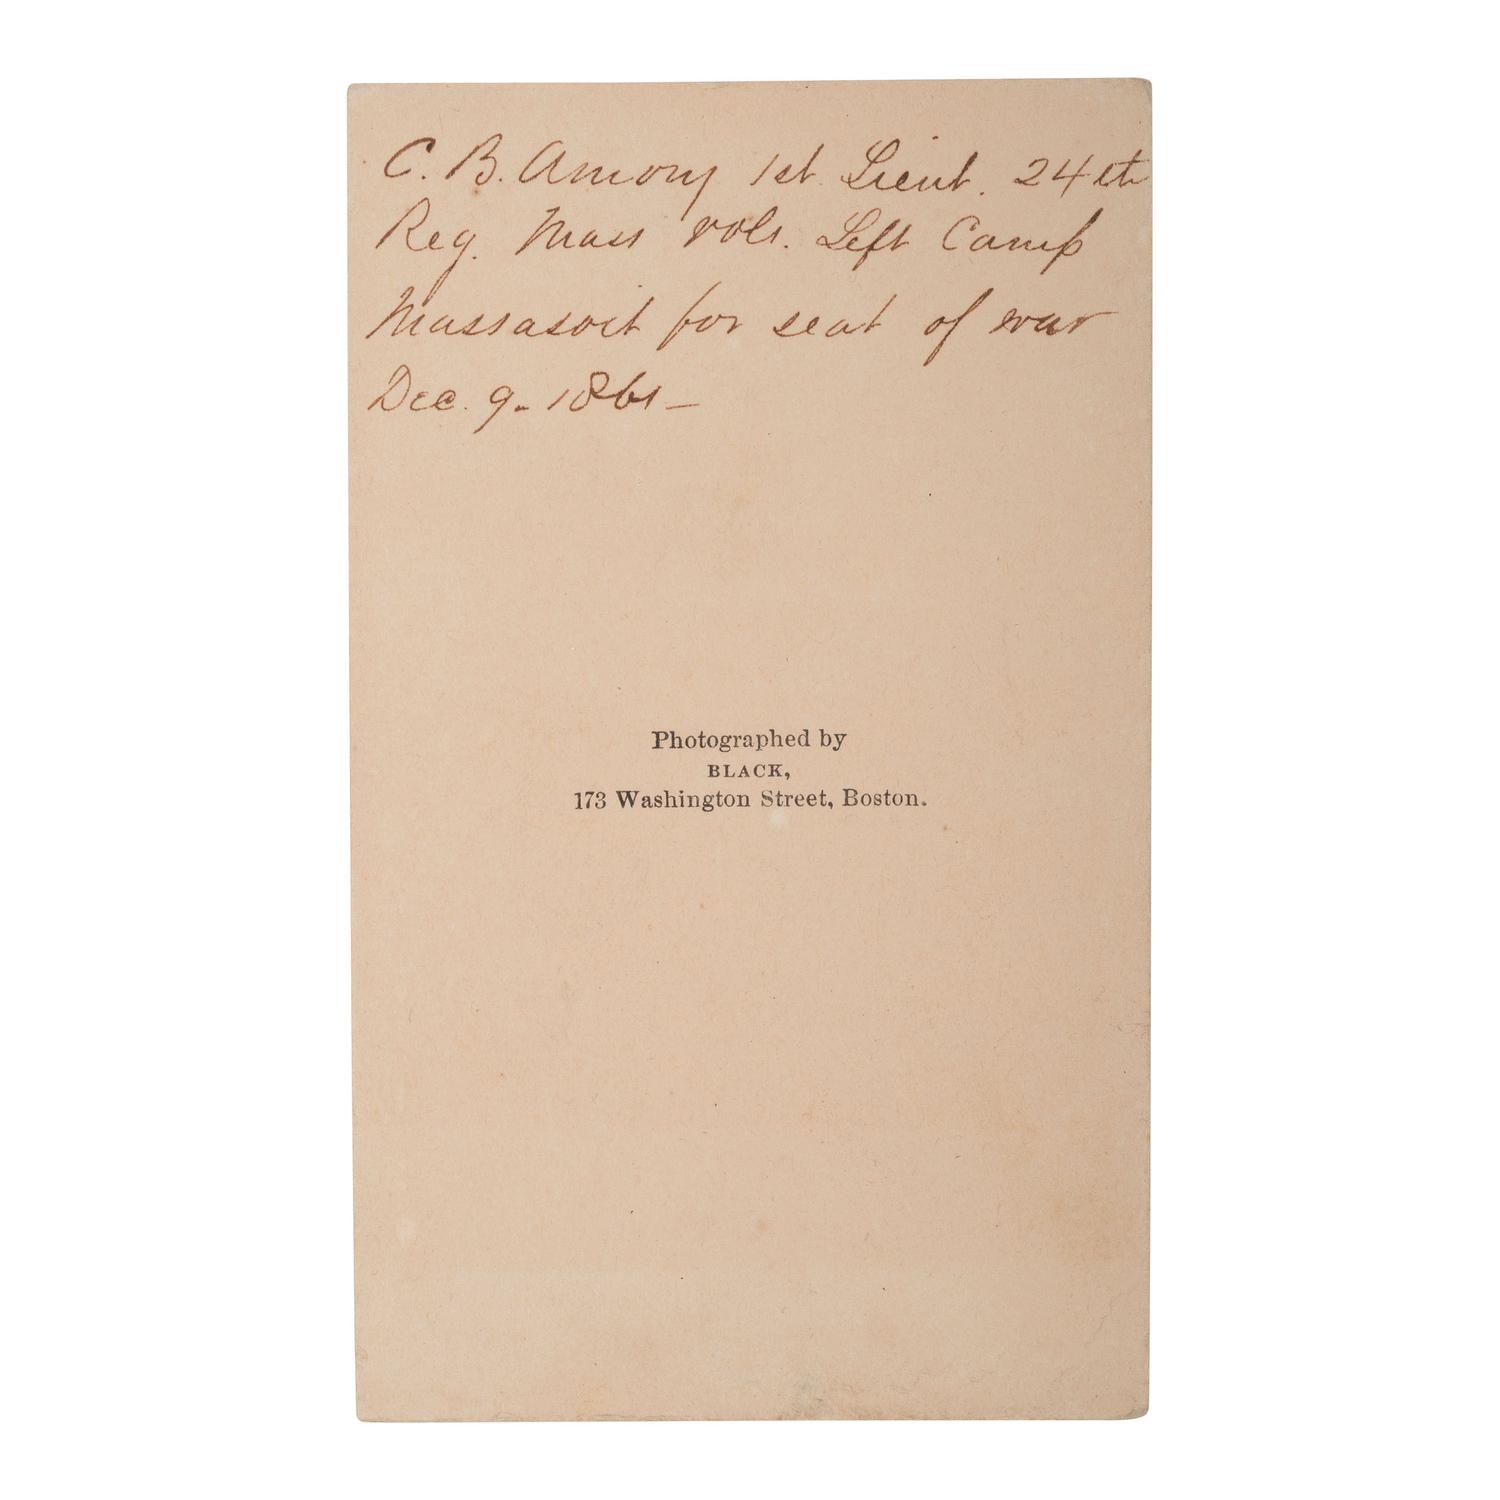 C. B. Amory 1st. Lieut. 24th
Reg. Mass vols. Left Camp
Massasoit for seat of war
Dec. 9. 1861 —
Photographed by
BLACK,
173 Washington Street, Boston.